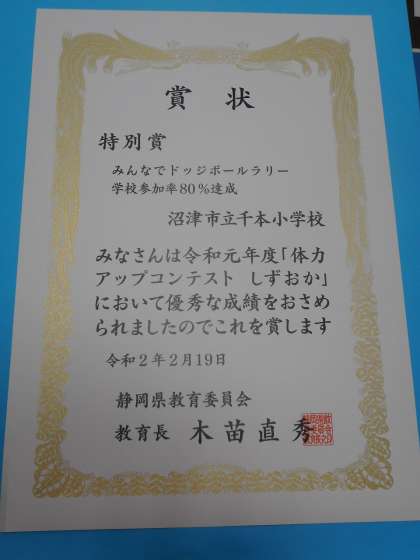 賞状
特別賞
みんなでドッジボールラリー
学校参加率80%達成
沼津市立千本小学校
みなさんは令和元年度「体力
アップコンテスト しずおか」
において優秀な成績をおさめ
られましたのでこれを賞します
令和2年2月19日
静岡県教育委員会
教育長 木苗直秀